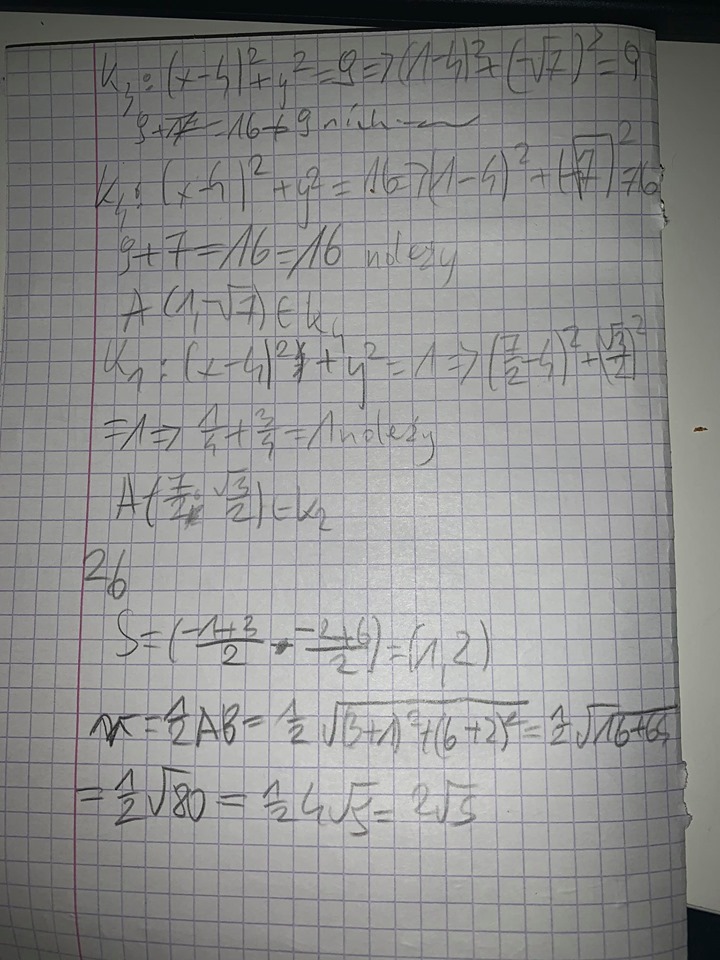 K₃: (x-4)²+y²=9 => (1-4)²+(-√7)²=9
9+7=16≠9
K₄: (x-4)²+y²=16 => (1-4)²+(-√7)²=16
9+7=16=16 należy
A(1,-√7)∈k₄
K₁: (x-4)²+y²=1 => (7/2-4)²+(√3/2)²
=1 => 1/4+3/4=1 należy
A(7/2; √3/2)∈k₂
26
S=(-1+3/2, -2+6/2)=(1,2)
r=1/2AB=1/2√(3+1)²+(6+2)²=1/2√16+64
=1/2√80=1/2 4√5=2√5